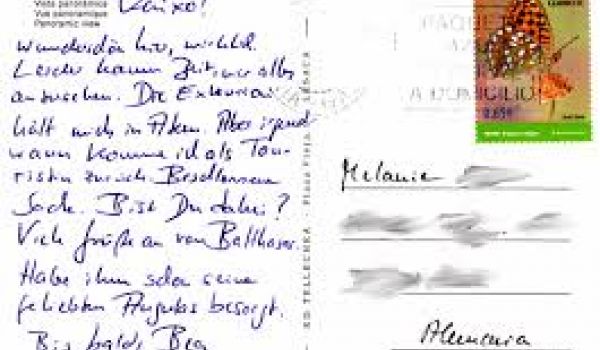 Vista panorámica
Vue panoramique
Panoramic view
Kaixo!
wunderschön hier, wirklich.
Leider kaum Zeit, mir alles
anzusehen. Die Exkursion
hält mich in Atem. Aber irgend
wann komme ich als Tou-
ristin zurück. Beschlossene
Sache. Bist Du dabei?
Viele Grüße an von Balthasar.
Habe ihm schon seine
geliebten besorgt.
Bis bald! Bea
CORREOS
PAQUE
A DOMICILIO
0,65€
ED TELLECHEA
Plaza
LESACA
Melanie
Alemania